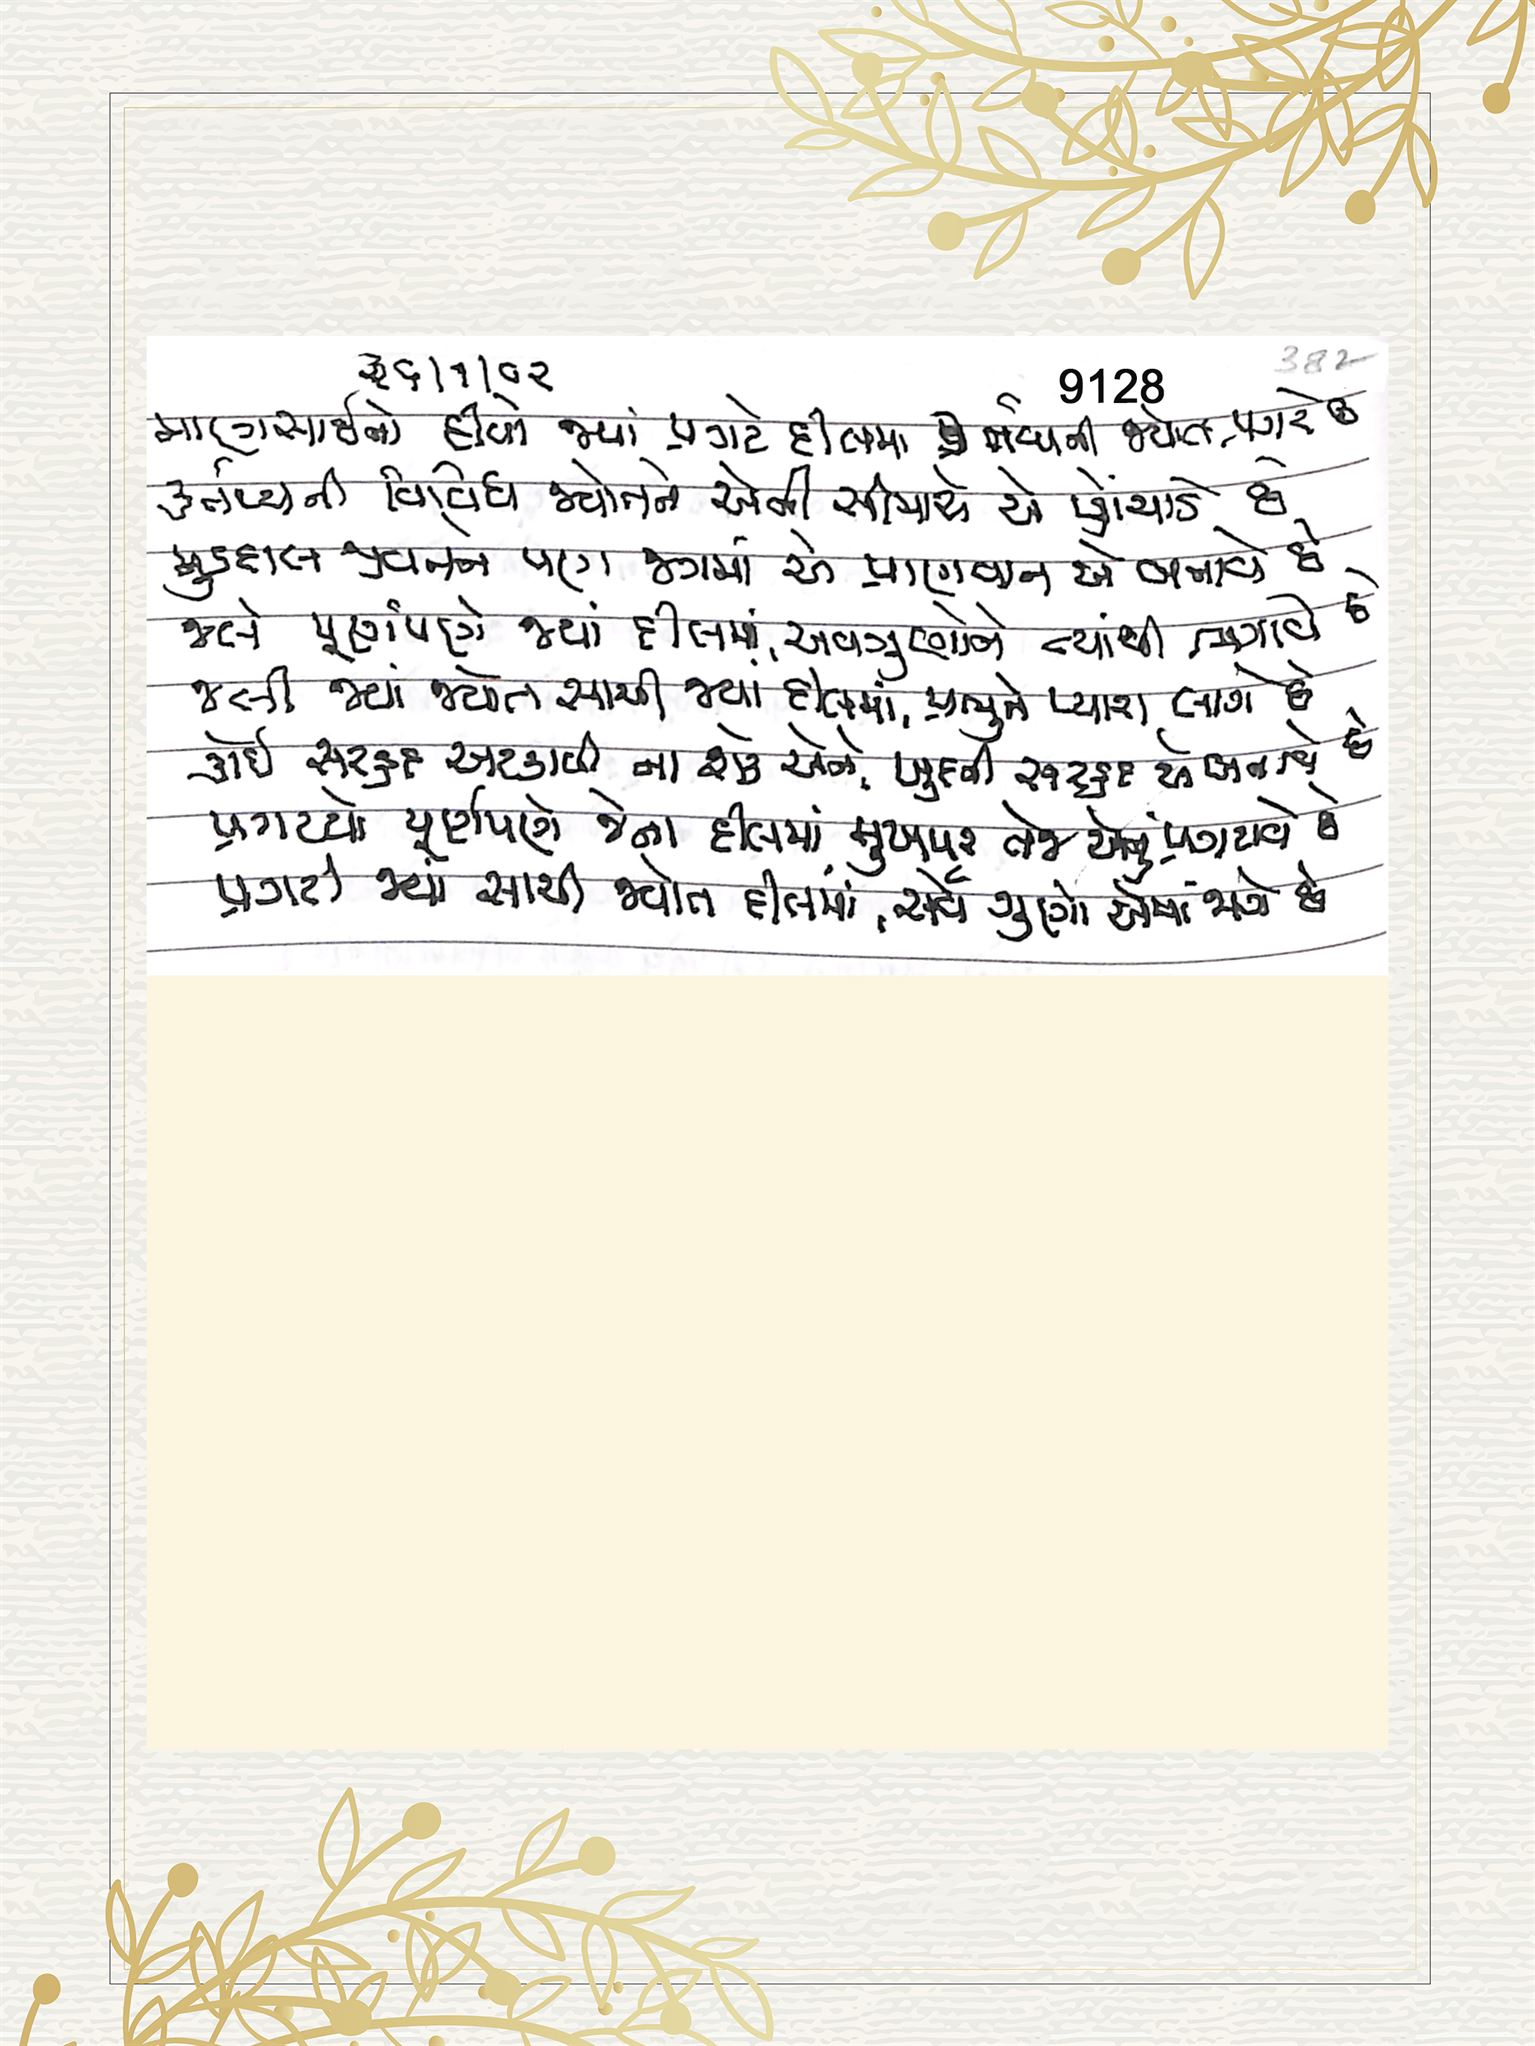 382
૨૬|૧|૦૨
9128
માણસાઈનો દીવો જ્યાં પ્રગટે દીલમા કર્તવ્યની જ્યોત પ્રગટે છે
કર્તવ્યની વિવિધ જ્યોતને એની સીમાએ એ પ્હોંચાડે છે
મુડદાલ જીવનને પણ જગમાં એ પ્રાણવાન એ બનાવે છે
જલે પૂર્ણપણે જ્યાં દીલમાં, અવગુણોને ત્યાંથી ભગાવે છે
જલી જ્યાં જ્યોત સાચી જ્યાં દીલમાં, પ્રભુને પ્યારા લાગે છે
કોઈ સરહદ અટકાવી ના શકે એને, ખુદની સરહદ એ બનાવે છે
પ્રગટયો પૂર્ણપણે જેના દીલમાં, મુખપર તેજ એનું પ્રગટાવે છે
પ્રગટી જ્યાં સાચી જ્યોત દીલમાં, સર્વે ગુણો એમાં ભળે છે